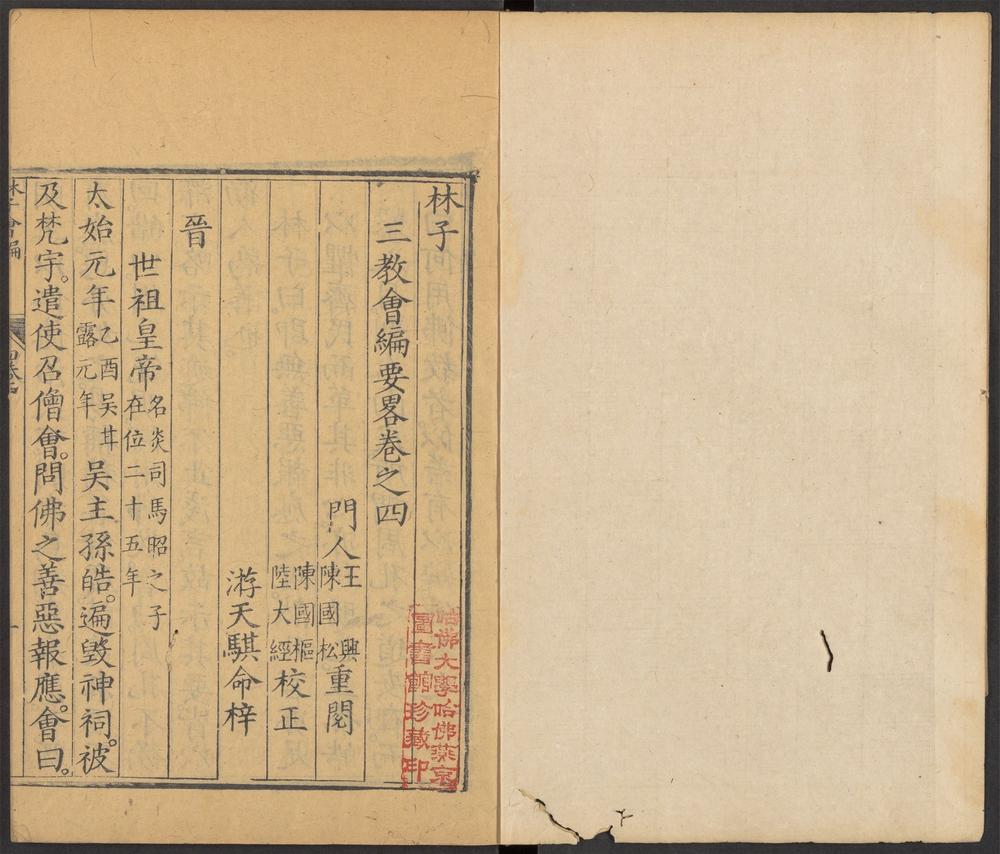 林子
三教會編要畧卷之四
門人王興陳國松重閱
陳國樞陸大經校正
游天騏命梓
晉
世祖皇帝名炎司馬昭之子在位二十五年
太始元年乙酉吳甘露元年吳主孫皓。遍毀神祠。被
及梵宇。遣使召僧會。問佛之善惡報應。會曰。
哈佛大學哈佛燕京圖書館珍藏印